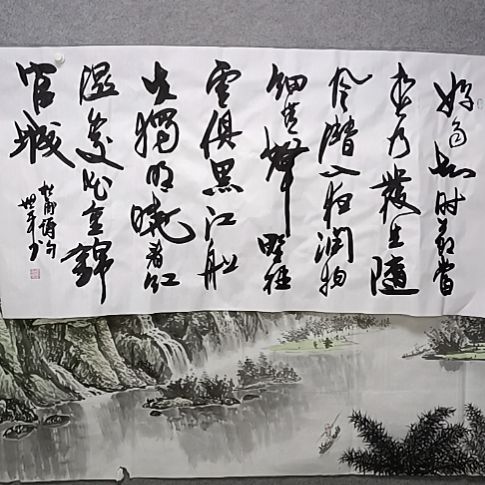 好雨知时节当
春乃發生随
风潜入夜润物
细无聲野径
雲俱黑江船
火獨明晓看红
湿处花重錦
官城
杜甫诗句